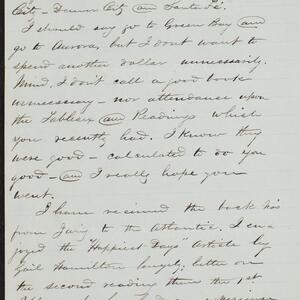 City - Denver City and Santa Fé.
I should say go to Green Bay and
go to Aurora, but I don't want to
spend another dollar unnecessarily.
Mind, I don't call a good book
unnecessary - nor attendance upon
the Tableux and Readings which
you recently had. I know they
were good - calculated to do you
good - and I really hope you
went.
I have received the back no's
from Jany to the Atlantic. I en-
joyed the "Happiest Days" Article by
Gail Hamilton largely, better on
the second reading than the 1st